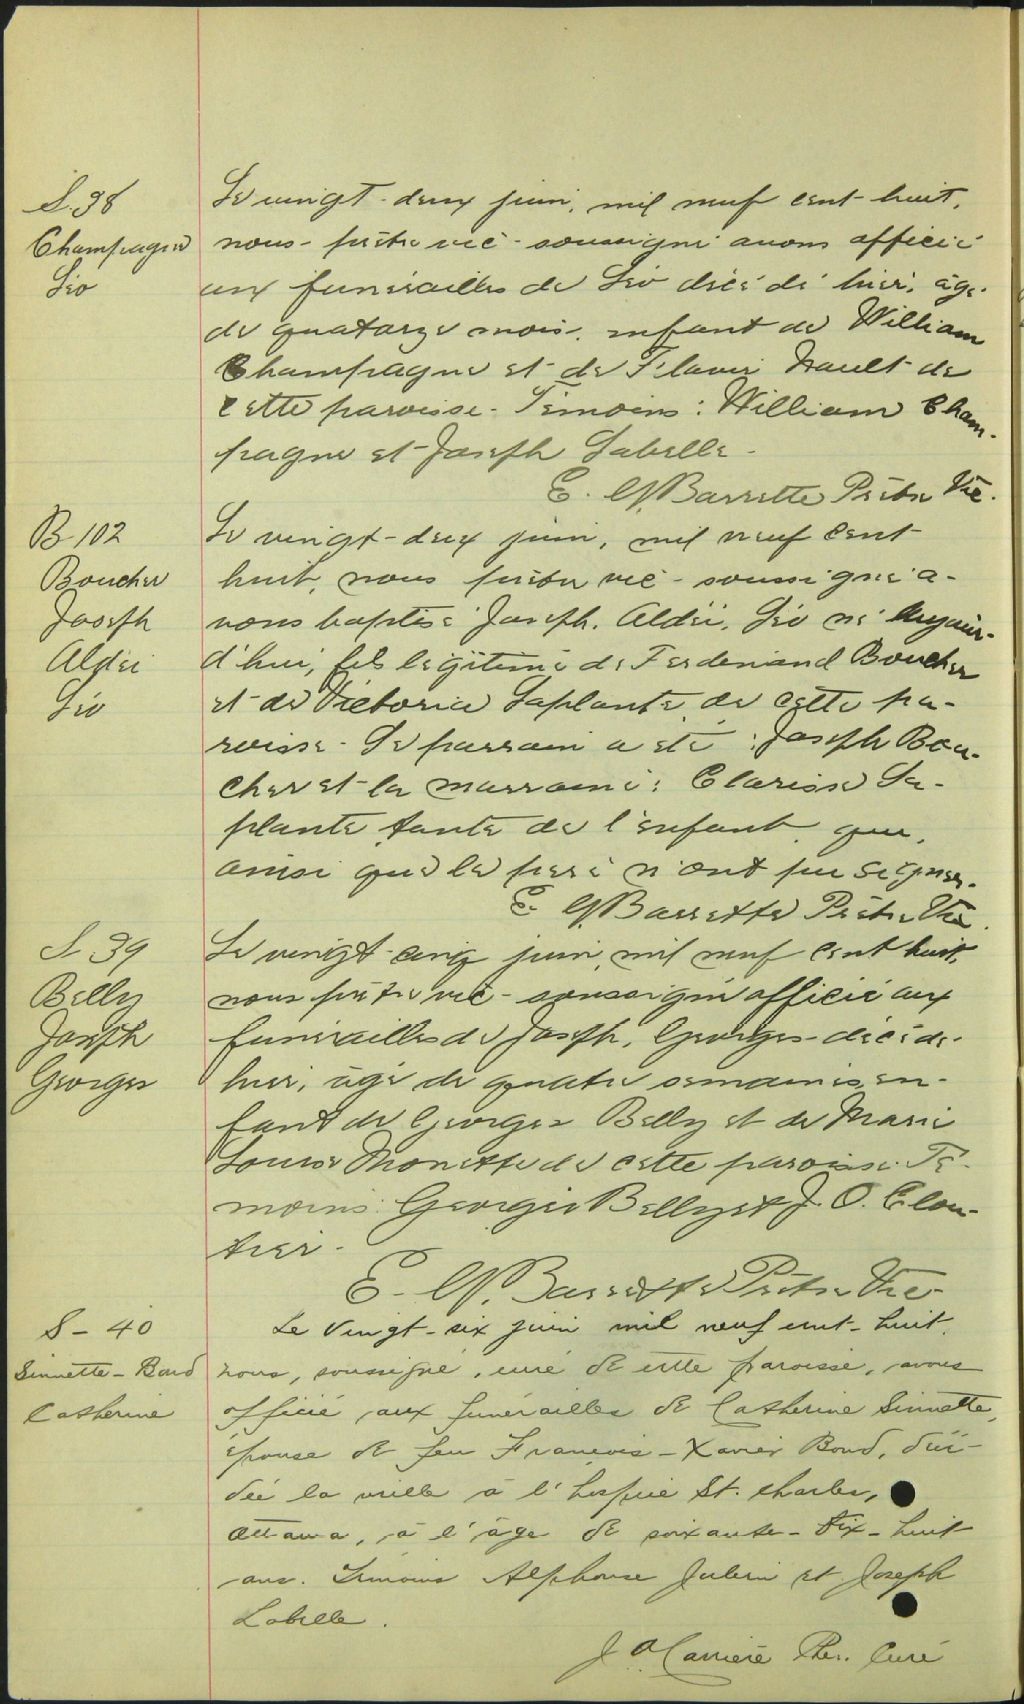 S. 38
Champagne
Léo
Le vingt-deux juin, mil neuf cent-huit,
nous-prêtre vic-soussigné avons officié
aux funérailles de Léo décédé hier, âgé
de quatorze mois, enfant de William
Champagne et de Flavie Nault de
cette paroisse. Témoins: William Cham-
pagne et Joseph Labelle.
E. Barrette Prêtre Vic.
B-102
Boucher
Joseph
Aldéi
Léo
Le vingt-deux juin, mil neuf cent
huit, nous prêtre vic-soussigné a-
vons baptisé Joseph, Aldéi, Léo né aujour-
d'hui, fils légitime de Ferdinand Boucher
et de Victoria Laplante de cette pa-
roisse. Le parrain a été: Joseph Bou-
cher et la marraine: Clarisse La-
plante tante de l'enfant qui,
ainsi que le père n'ont pu signer.
E. Barrette Prêtre Vic.
S 39
Belly
Joseph
Georges
Le vingt-cinq juin, mil neuf cent huit,
nous prêtre vic-soussigné officié aux
funérailles de Joseph, Georges-décédé
hier, âgé de quatre semaines, en-
fant de Georges Belly et de Marie
Louise Monette de cette paroisse. Té-
moins: Georges Belly et J. O. Clou-
tier.
E. Barrette Prêtre Vic.
S-40
Sinnette-Bond
Catherine
Le vingt-six juin mil neuf cent-huit,
nous, soussigné, curé de cette paroisse, avons
officié aux funérailles de Catherine Sinnette,
épouse de feu François-Xavier Bond, décé-
dée la veille à l'hospice St. Charles,
Ottawa, à l'âge de soixante-dix-huit
ans. Témoins Alphonse Julien et Joseph
Labelle.
J A Carrière Ptr. Curé